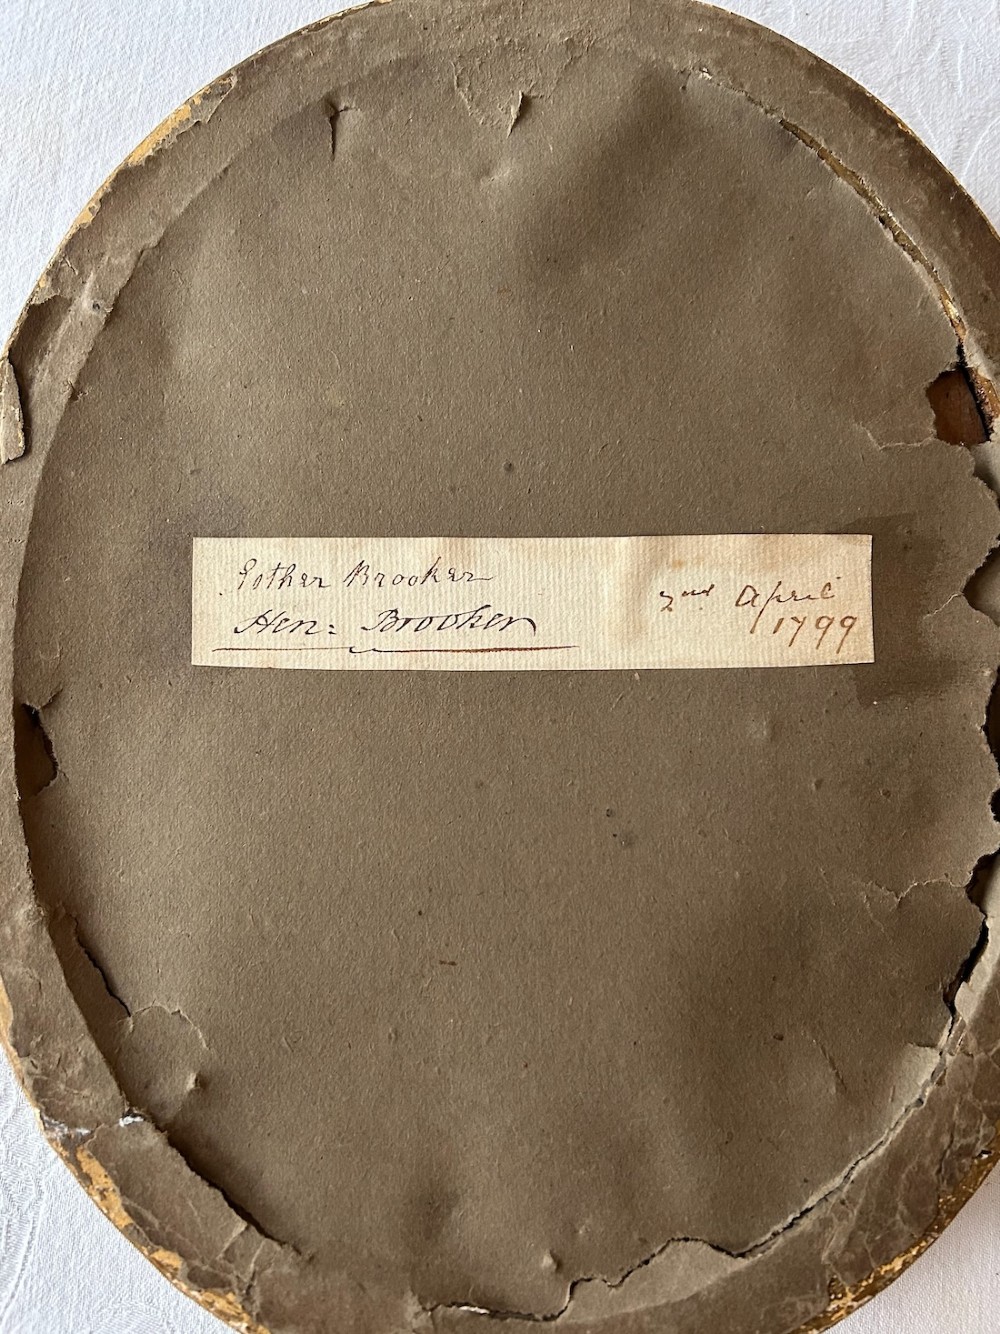 Esther Brooker
Hen: Brooker
2nd April
1799